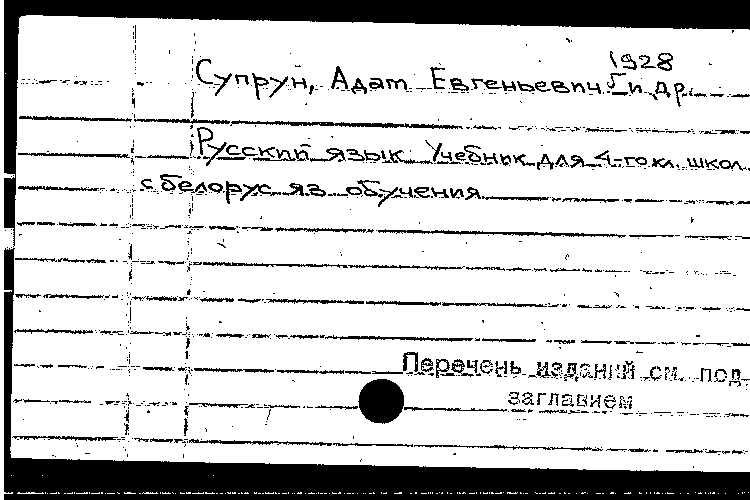 1928
Супрун, Адам Евгеньевич и др.
Русский язык. Учебник для 4-го кл. школ
с белорус яз обучения
Перечень изданий см. под
заглавием